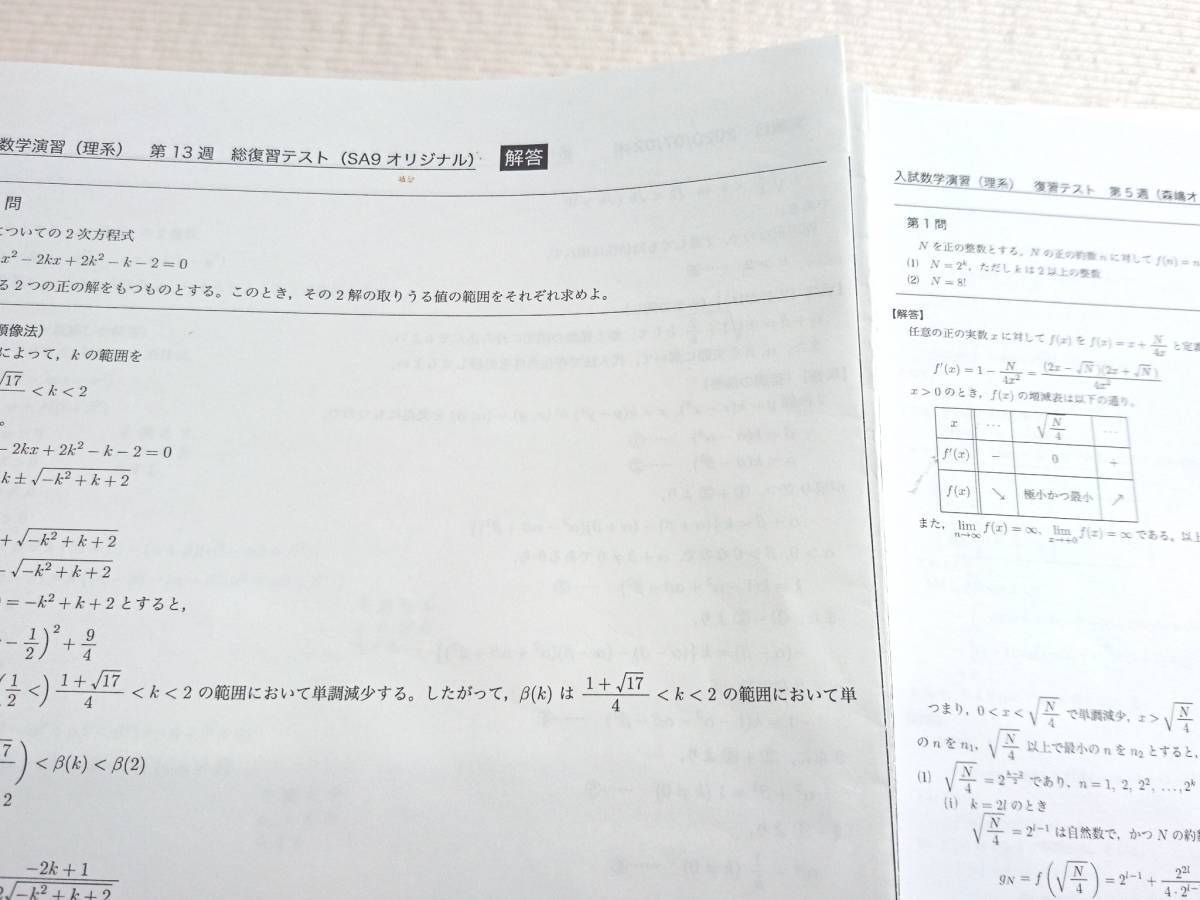 数学演習（理系） 第13週 総復習テスト（SA9 オリジナル） 解答
問
についての2次方程式
x² − 2kx + 2k² − k − 2 = 0
る2つの正の解をもつものとする。このとき，その2解の取りうる値の範囲をそれぞれ求めよ。
順像法）
によって，kの範囲を
√17 < k < 2
。
− 2kx + 2k² − k − 2 = 0
k ± √(−k² + k + 2)
+ √(−k² + k + 2)
− √(−k² + k + 2)
) = −k² + k + 2 とすると，
− 1/2)² + 9/4
(1/2 <) (1 + √17)/4 < k < 2 の範囲において単調減少する。したがって，β(k) は (1 + √17)/4 < k < 2 の範囲において単
) < β(k) < β(2)
2
(−2k + 1)/(2√(−k² + k + 2))
入試数学演習（理系） 復習テスト 第5週（森嶋オ
第1問
Nを正の整数とする。Nの正の約数nに対して f(n) = n
(1) N = 2ᵏ，ただしkは2以上の整数
(2) N = 8!
【解答】
任意の正の実数xに対して f(x) を f(x) = x + N/4x と定義
f′(x) = 1 − N/4x² = (2x − √N)(2x + √N)/4x²
x > 0 のとき，f(x) の増減表は以下の通り。
x … √(N/4) …
f′(x) − 0 +
f(x) ↘ 極小かつ最小 ↗
また，lim n→∞ f(x) = ∞，lim x→+0 f(x) = ∞ である。以上
つまり，0 < x < √(N/4) で単調減少，x > √(N/4)
のnを n₁，√(N/4) 以上で最小のnを n₂ とすると，
(1) √(N/4) = 2^((k−2)/2) であり，n = 1, 2, 2², …, 2ᵏ
(i) k = 2l のとき
√(N/4) = 2^(l−1) は自然数で，かつNの約数
g_N = f(√(N/4)) = 2^(l−1) + 2^(2l)/(4·2^(l−